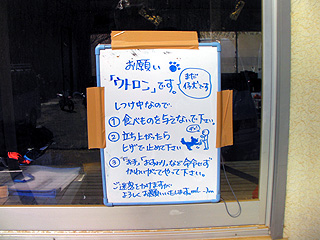 お願い
「ウトロン」です。
まだ
仔犬です
しつけ中なので
① 食べものを与えないで下さい。
② 立ち上がったら
ヒザで止めて下さい
③ 「お手」「おすわり」など命令せず
かわいがってやって下さい。
ご迷惑をおかけますが
よろしくお願いいたします。m(_ _)m